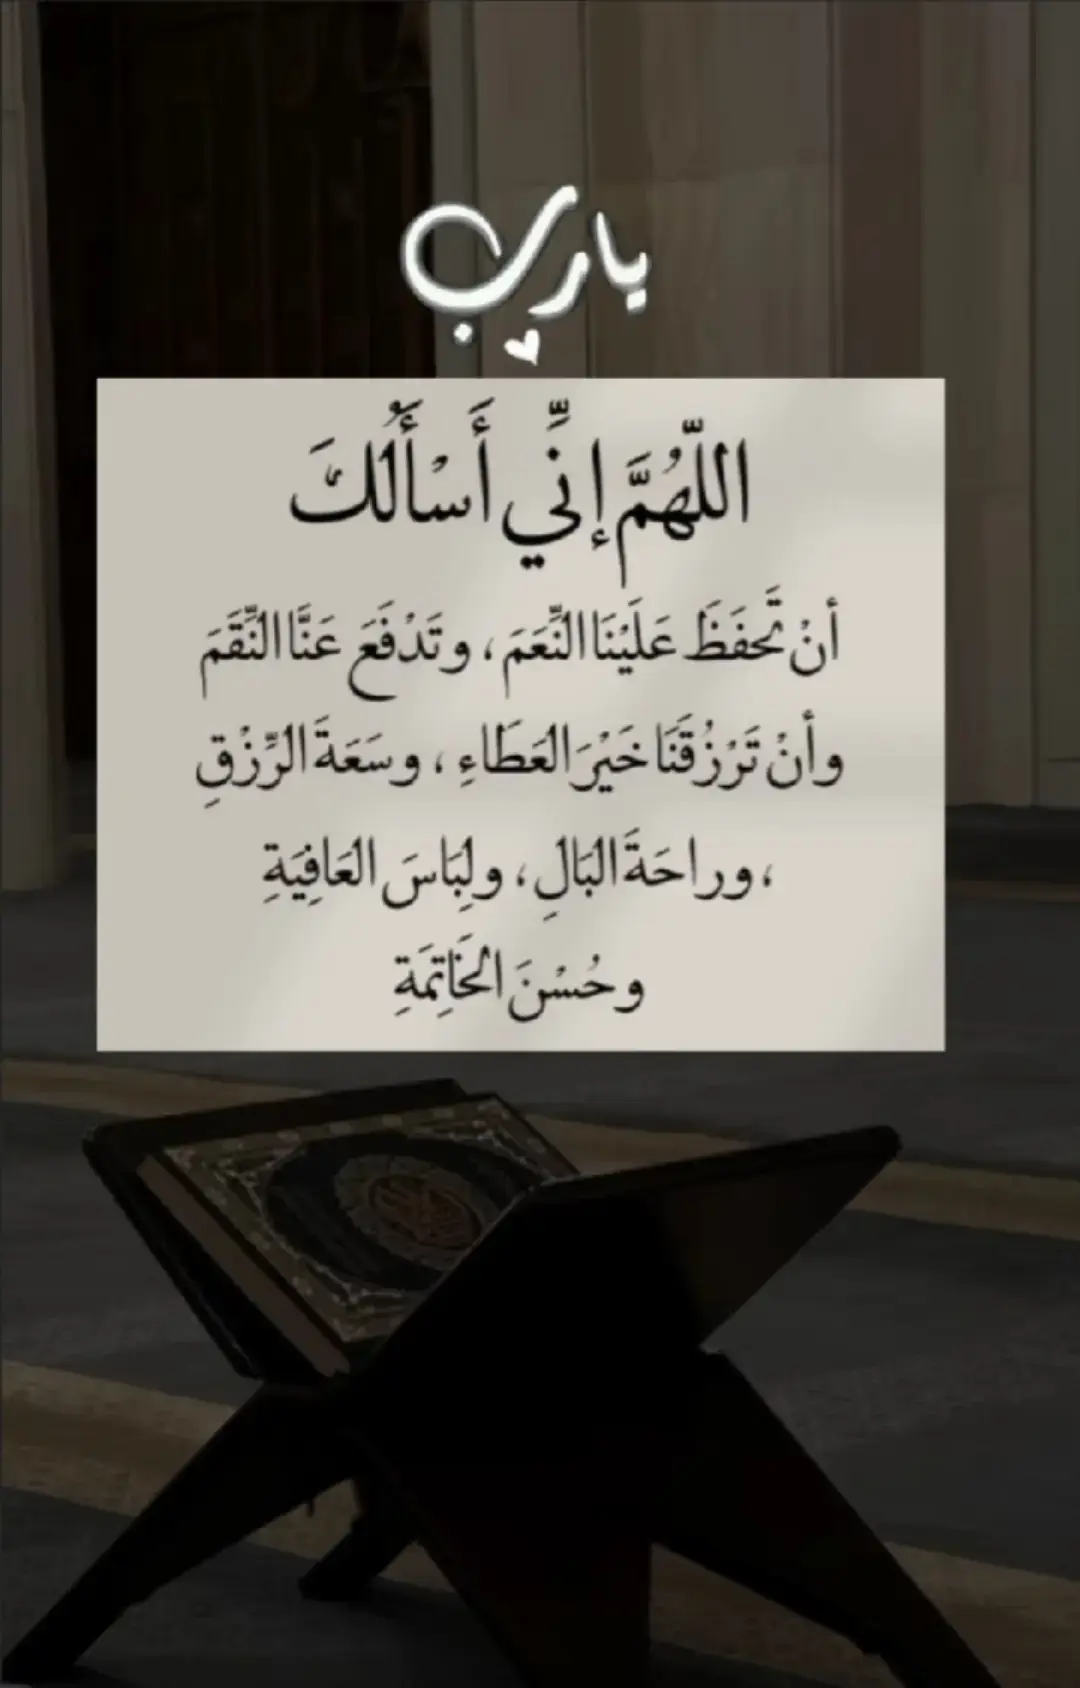 يارب
اللّهُمَّ إنِّي أَسْأَلُكَ
أنْ تَحفَظَ عَلَيْنَا النِّعَمَ، وتَدْفَعَ عَنَّا النِّقَمَ
وأنْ تَرْزُقَنَا خَيْرَ العَطَاءِ، وسَعَةَ الرِّزْقِ
، وراحَةَ البَالِ، ولِبَاسَ العَافِيَةِ
وحُسْنَ الخَاتِمَةِ